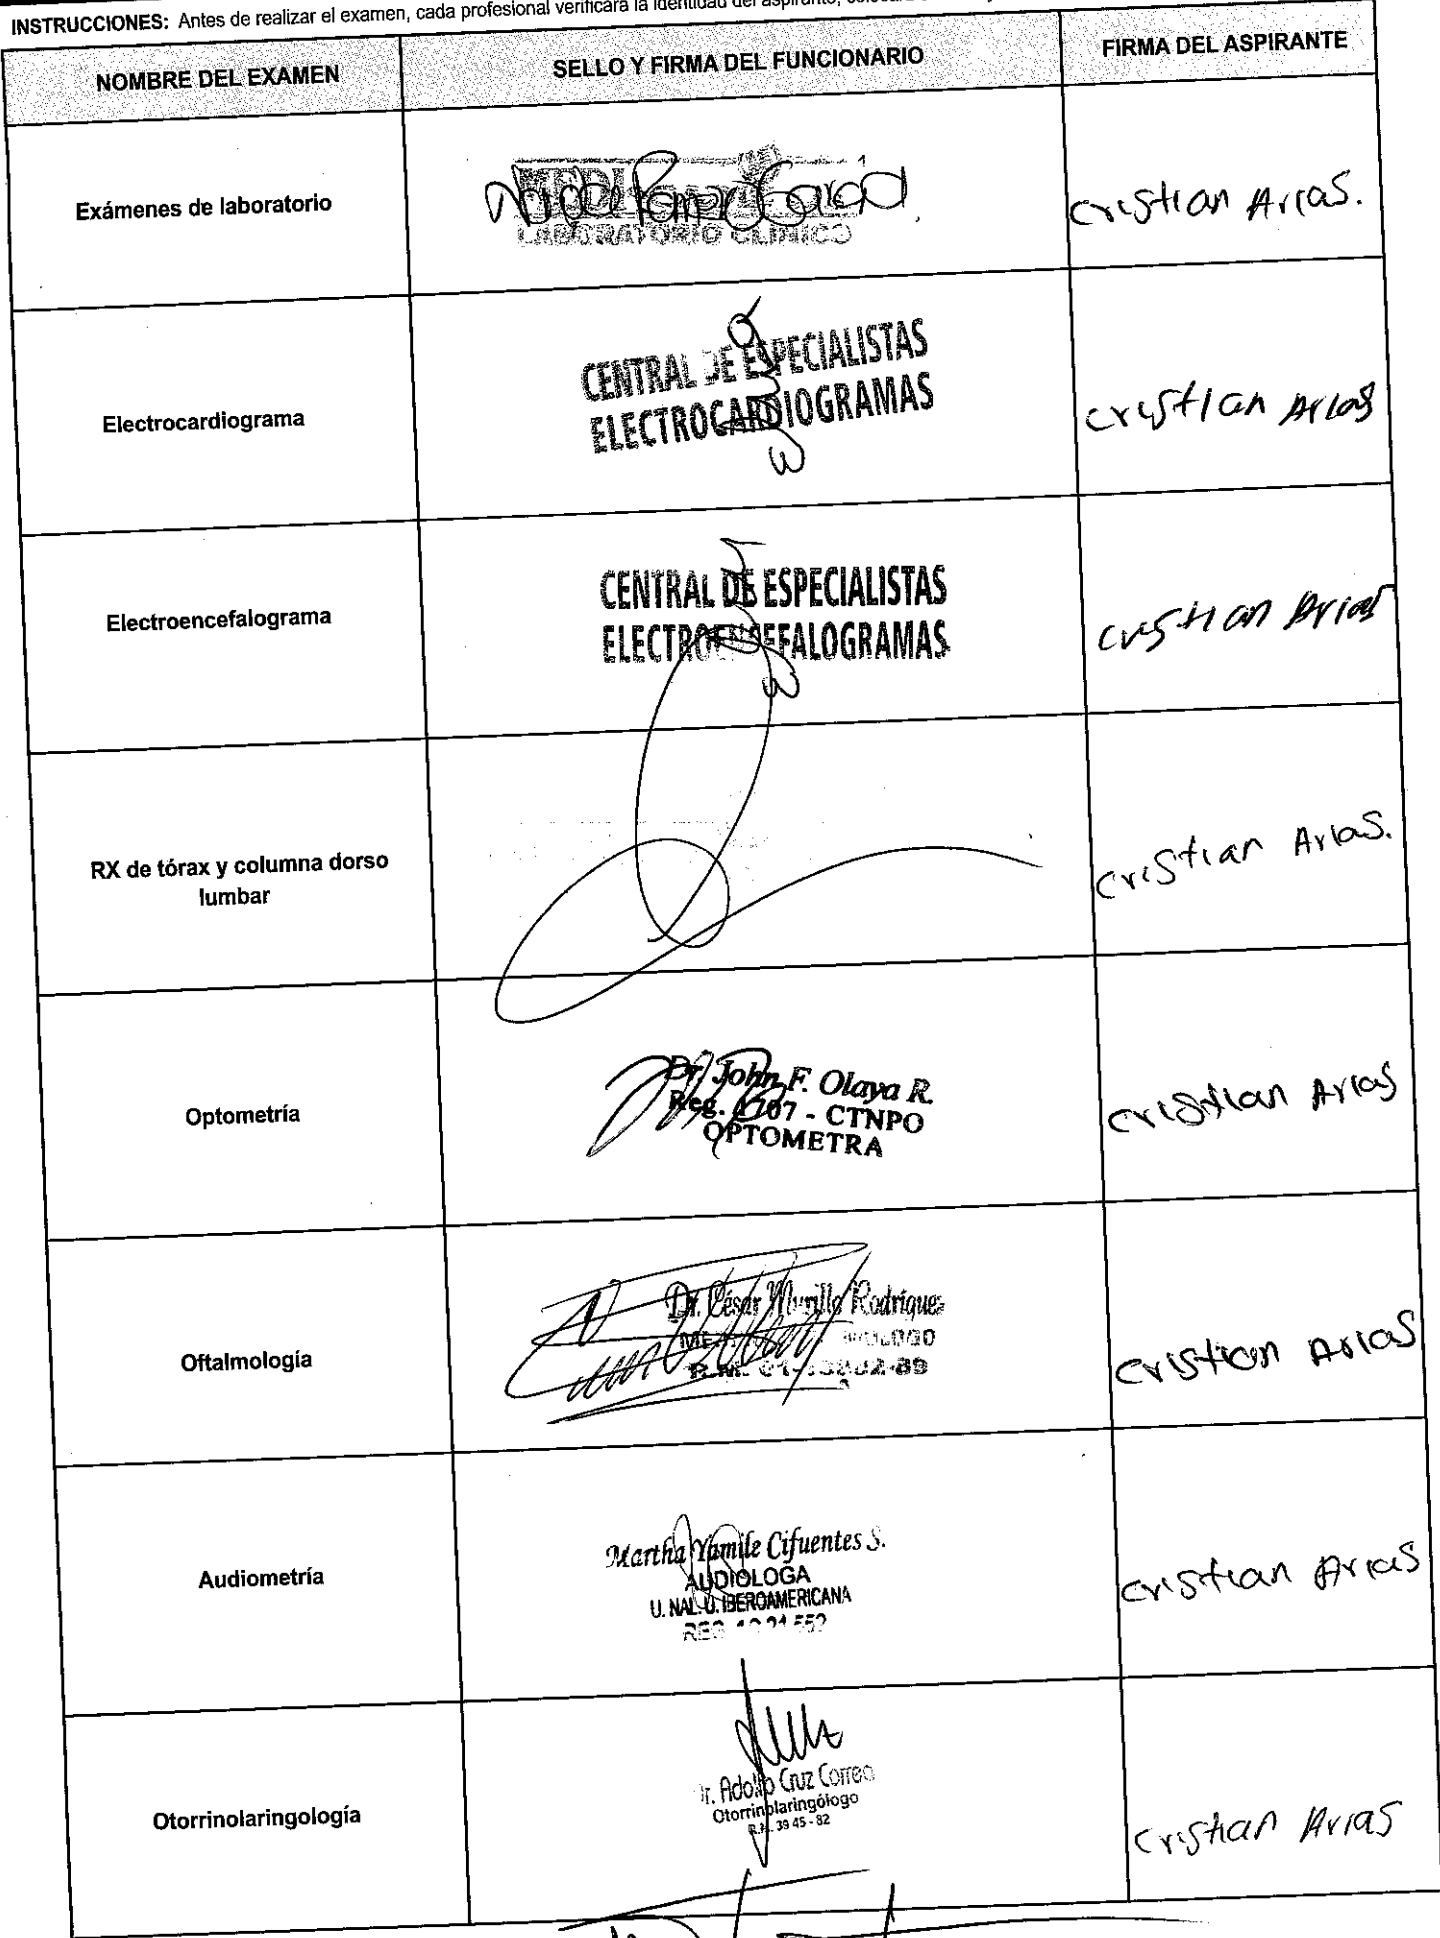 INSTRUCCIONES: Antes de realizar el examen, cada profesional verificará la identidad del aspirante,
NOMBRE DEL EXAMEN
SELLO Y FIRMA DEL FUNCIONARIO
FIRMA DEL ASPIRANTE
Exámenes de laboratorio
LABORATORIO CLINICO
cristian Arias.
Electrocardiograma
CENTRAL DE ESPECIALISTAS
ELECTROCARDIOGRAMAS
cristian Arias
Electroencefalograma
CENTRAL DE ESPECIALISTAS
ELECTROENCEFALOGRAMAS
cristian Arias
RX de tórax y columna dorso
lumbar
cristian Arias.
Optometría
Dr. John F. Olaya R.
Reg. 1707 - CTNPO
OPTOMETRA
cristian Arias
Oftalmología
Dr. César Murillo Rodríguez
cristian Arias
Audiometría
Martha Yamile Cifuentes S.
AUDIOLOGA
U. NAL. U. IBEROAMERICANA
cristian Arias
Otorrinolaringología
Dr. Adolfo Cruz Correa
Otorrinolaringólogo
R.M. 39 45 - 82
cristian Arias